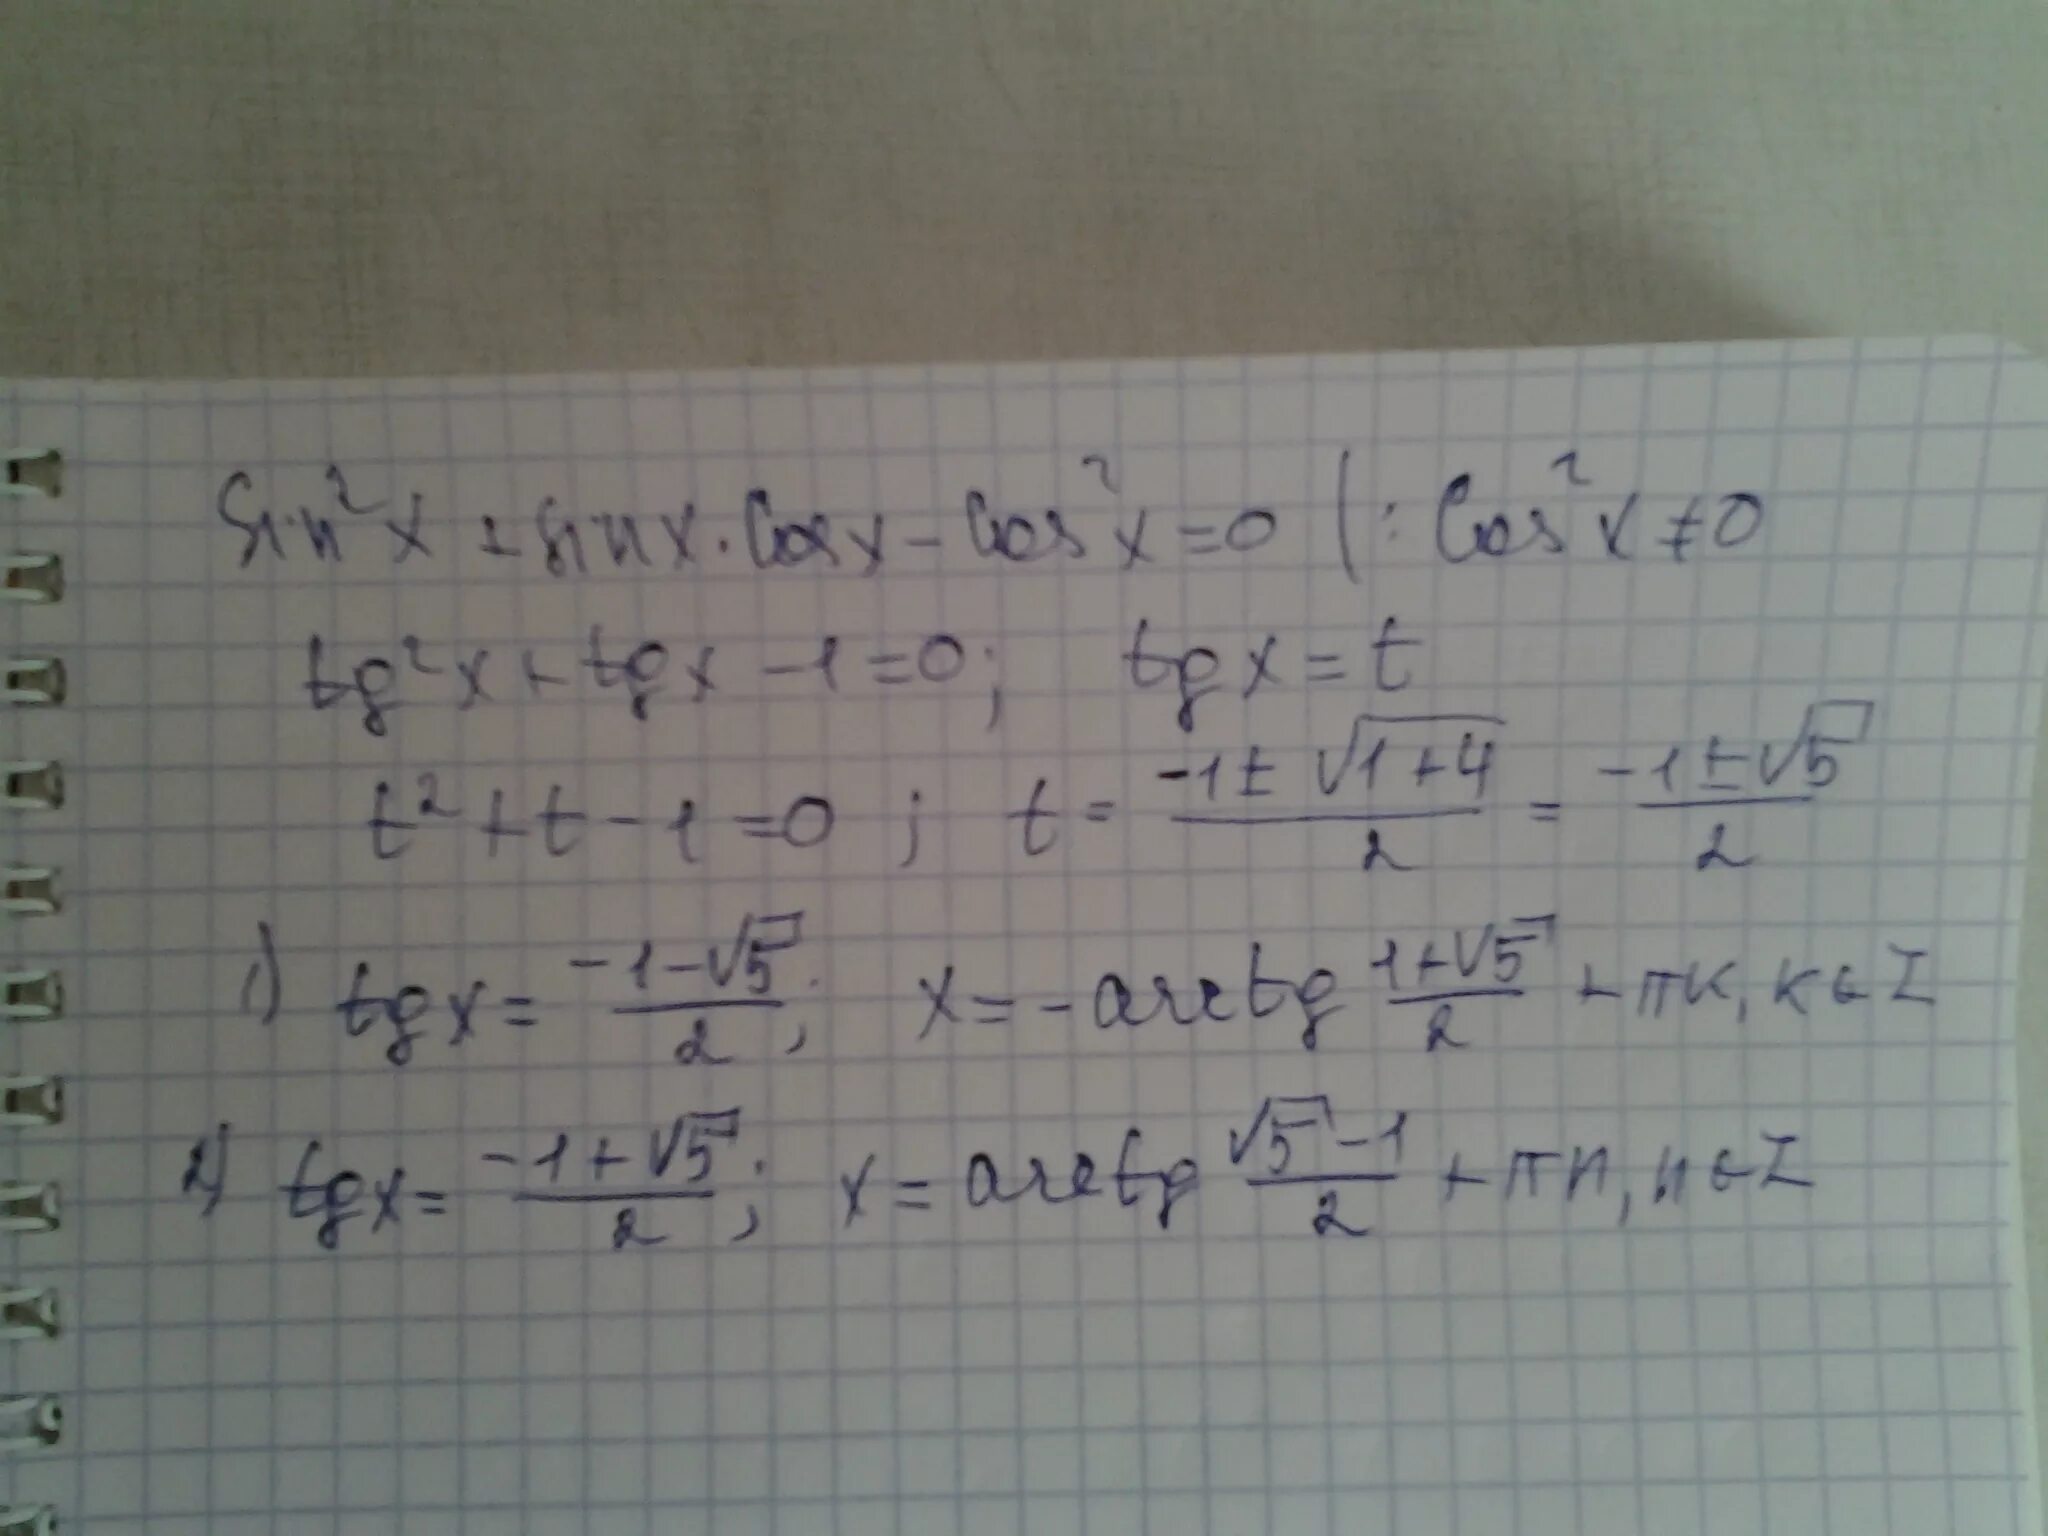 sin²x + sinx · cosx - cos²x = 0 | : cos²x ≠ 0
tg²x + tgx - 1 = 0; tgx = t
t² + t - 1 = 0; t = (-1 ± √(1+4))/2 = (-1 ± √5)/2
1) tgx = (-1-√5)/2; x = -arctg (1+√5)/2 + πk, k ∈ Z
2) tgx = (-1+√5)/2; x = arctg (√5-1)/2 + πn, n ∈ Z